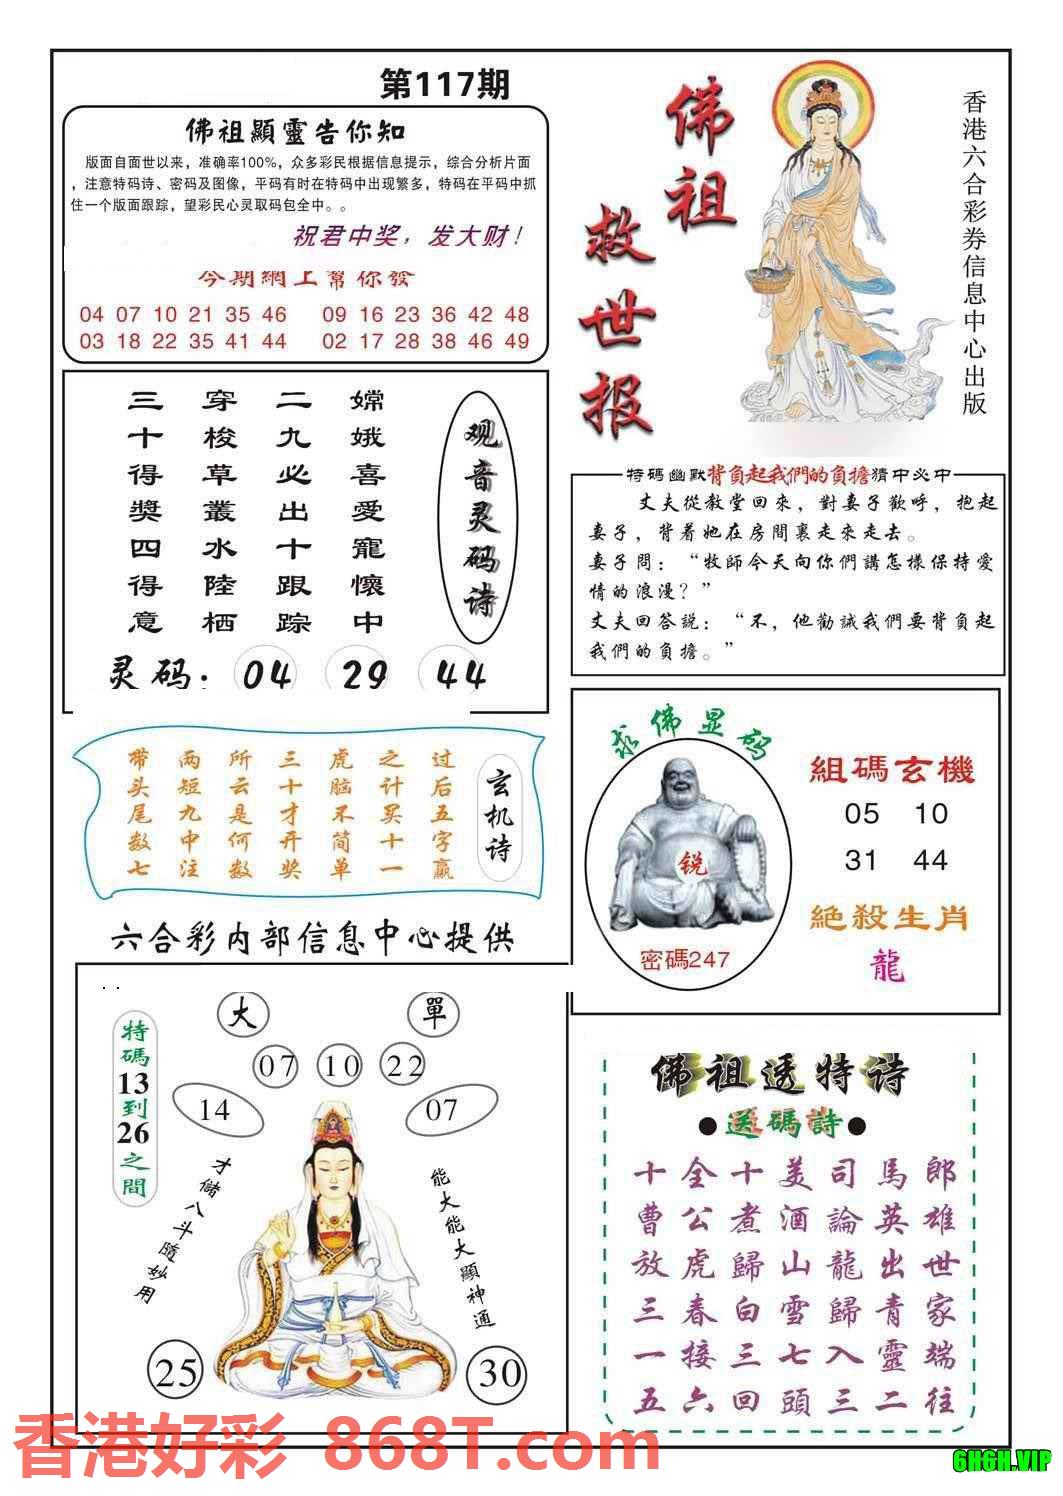 第117期
佛祖顯靈告你知
版面自面世以来，准确率100%，众多彩民根据信息提示，综合分析片面
，注意特码诗、密码及图像，平码有时在特码中出现繁多，特码在平码中抓
住一个版面跟踪，望彩民心灵取码包全中。。
祝君中奖，发大财！
今期網上幫你發
04 07 10 21 35 46 09 16 23 36 42 48
03 18 22 35 41 44 02 17 28 38 46 49
佛祖
救世报
香港六合彩券信息中心出版
观音灵码诗
嫦娥喜愛寵懷中
二九必出十跟踪
穿梭草叢水陸栖
三十得獎四得意
灵码：04 29 44
特碼幽默背負起我們的負擔猜中必中
丈夫從教堂回來，對妻子歡呼，抱起
妻子，背着她在房間裏走來走去。
妻子問：“牧師今天向你們講怎樣保持愛
情的浪漫？”
丈夫回答説：“不，他勸誡我們要背負起
我們的負擔。”
玄机诗
过后五字赢
之计买十一
虎脑不简单
三十才开奖
所云是何数
两短九中注
带头尾数七
求佛显码
锐
密碼247
組碼玄機
05 10
31 44
絕殺生肖
龍
六合彩内部信息中心提供
大 單
07 10 22
14 07
特碼13到26之間
才儲八斗隨妙用
能大能大顯神通
25 30
佛祖透特诗
●送碼詩●
十全十美司馬郎
曹公煮酒論英雄
放虎歸山龍出世
三春白雪歸青家
一接三七入靈端
五六回頭三二往
香港好彩 868T.com
6H6H.VIP